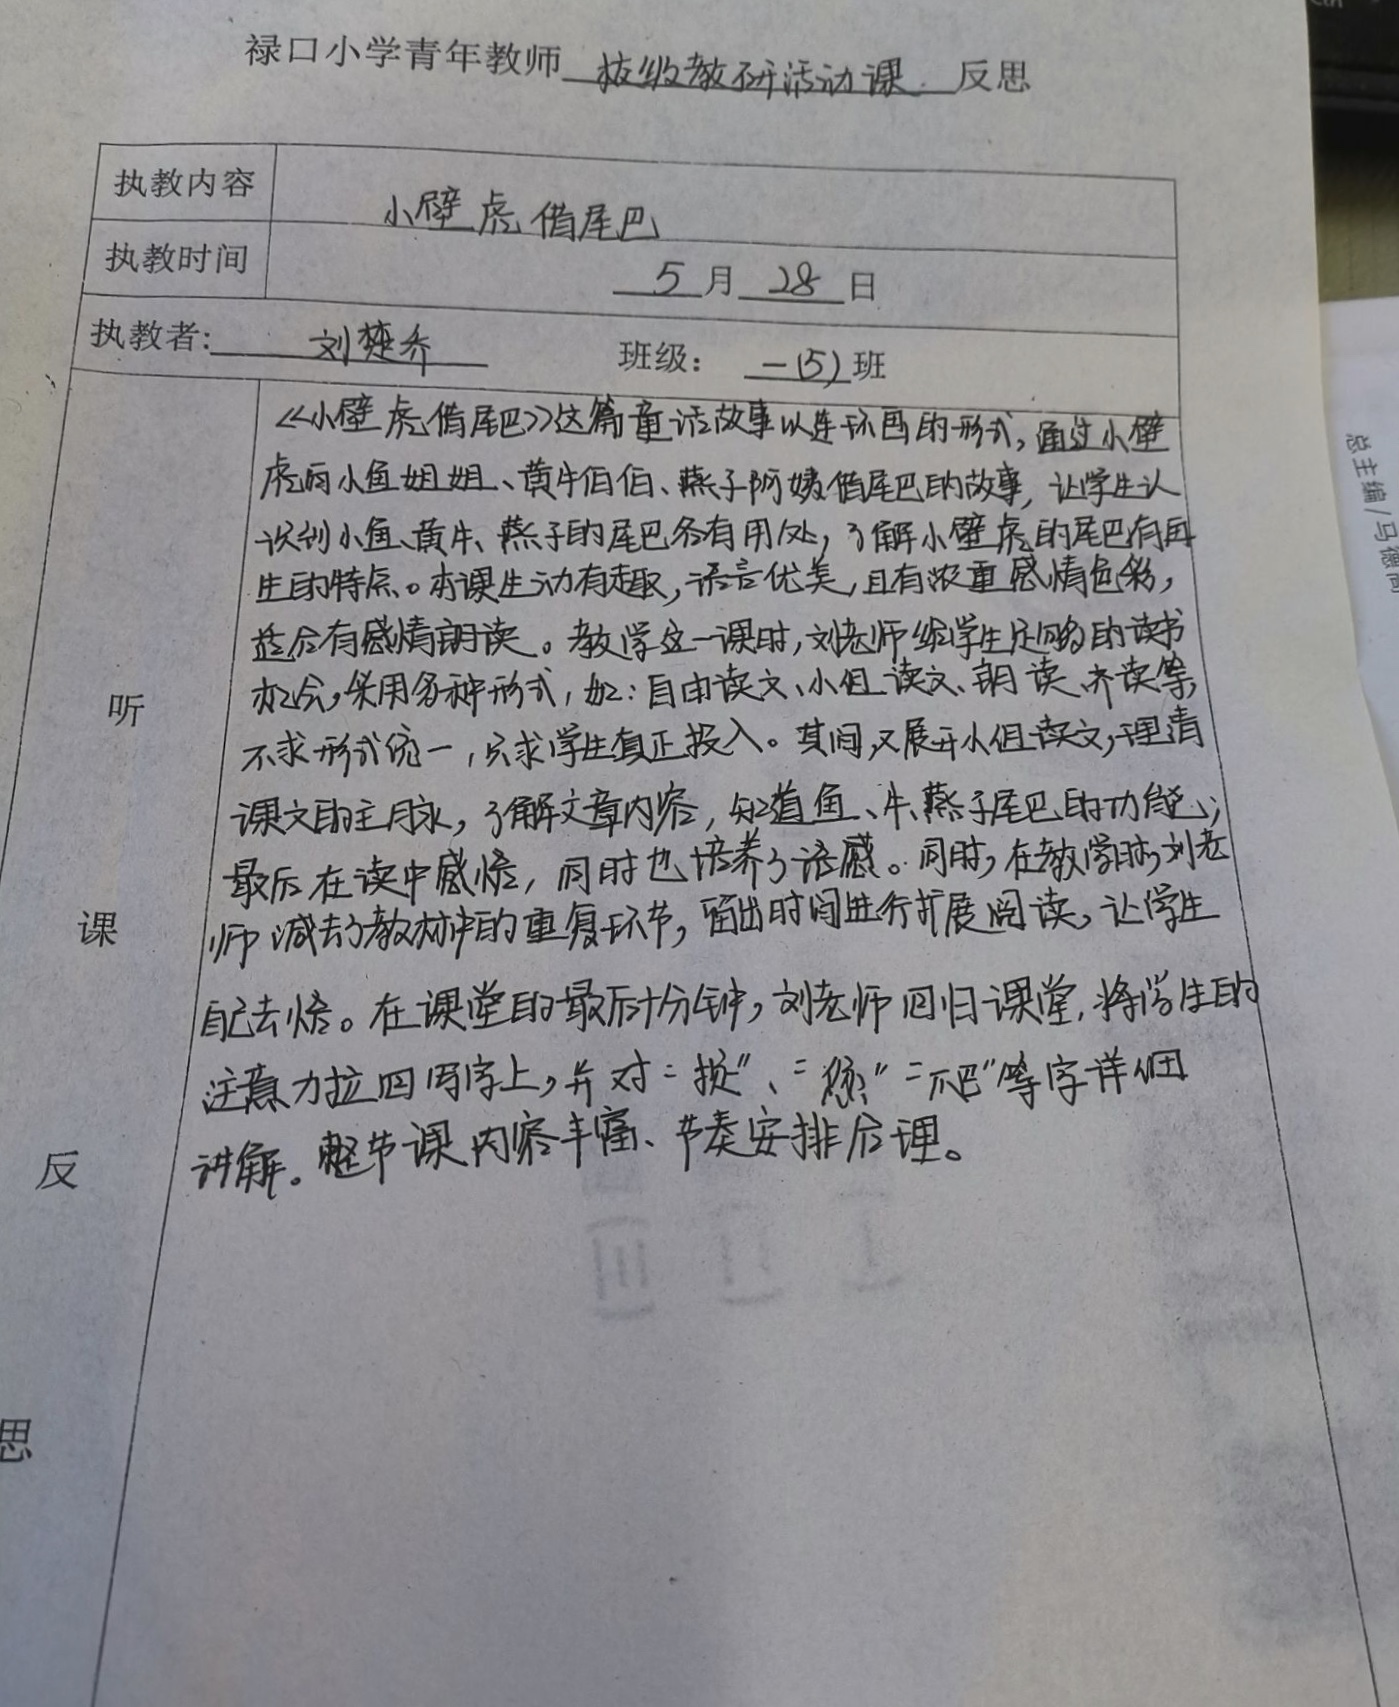 禄口小学青年教师 校级教研活动课 反思
执教内容 小壁虎借尾巴
执教时间 5月28日
执教者: 刘楚乔 班级: 一(5)班
《小壁虎借尾巴》这篇童话故事以连环画的形式,通过小壁
虎向小鱼姐姐、黄牛伯伯、燕子阿姨借尾巴的故事,让学生认
识到小鱼、黄牛、燕子的尾巴各有用处,了解小壁虎的尾巴有再
生的特点。本课生动有趣,语言优美,且有浓重感情色彩,
适合有感情朗读。教学这一课时,刘老师给学生足够的读书
机会,采用多种形式,如:自由读文、小组读文、朗读、齐读等,
不求形式统一,只求学生真正投入。其间,又展开小组读文,理清
课文的主脉,了解文章内容,知道鱼、牛、燕子尾巴的功能;
最后在读中感悟,同时也培养了语感。同时,在教学时,刘老
师减去了教材中的重复环节,留出时间进行扩展阅读,让学生
自己去悟。在课堂的最后十分钟,刘老师回归课堂,将学生的
注意力拉回写字上,并对"捉"、"您""爬"等字详细
讲解。整节课内容丰富、节奏安排合理。
听
课
反
思
总主编/马德高